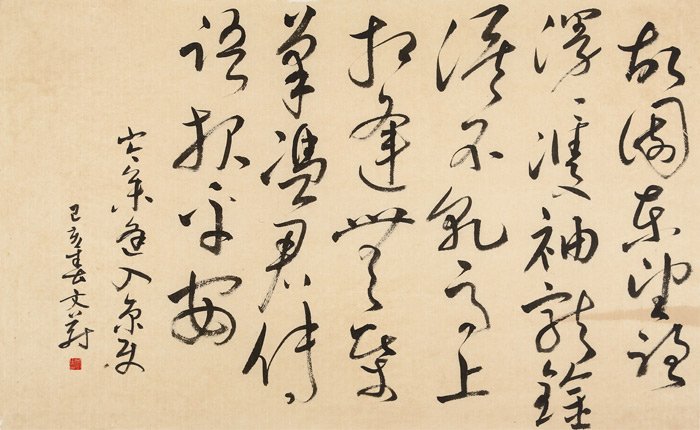 故園東望路
漫〻雙袖龍鐘
淚不乾馬上
相逢無紙
筆憑君傳
語報平安
岑參逢入京使
己亥春文